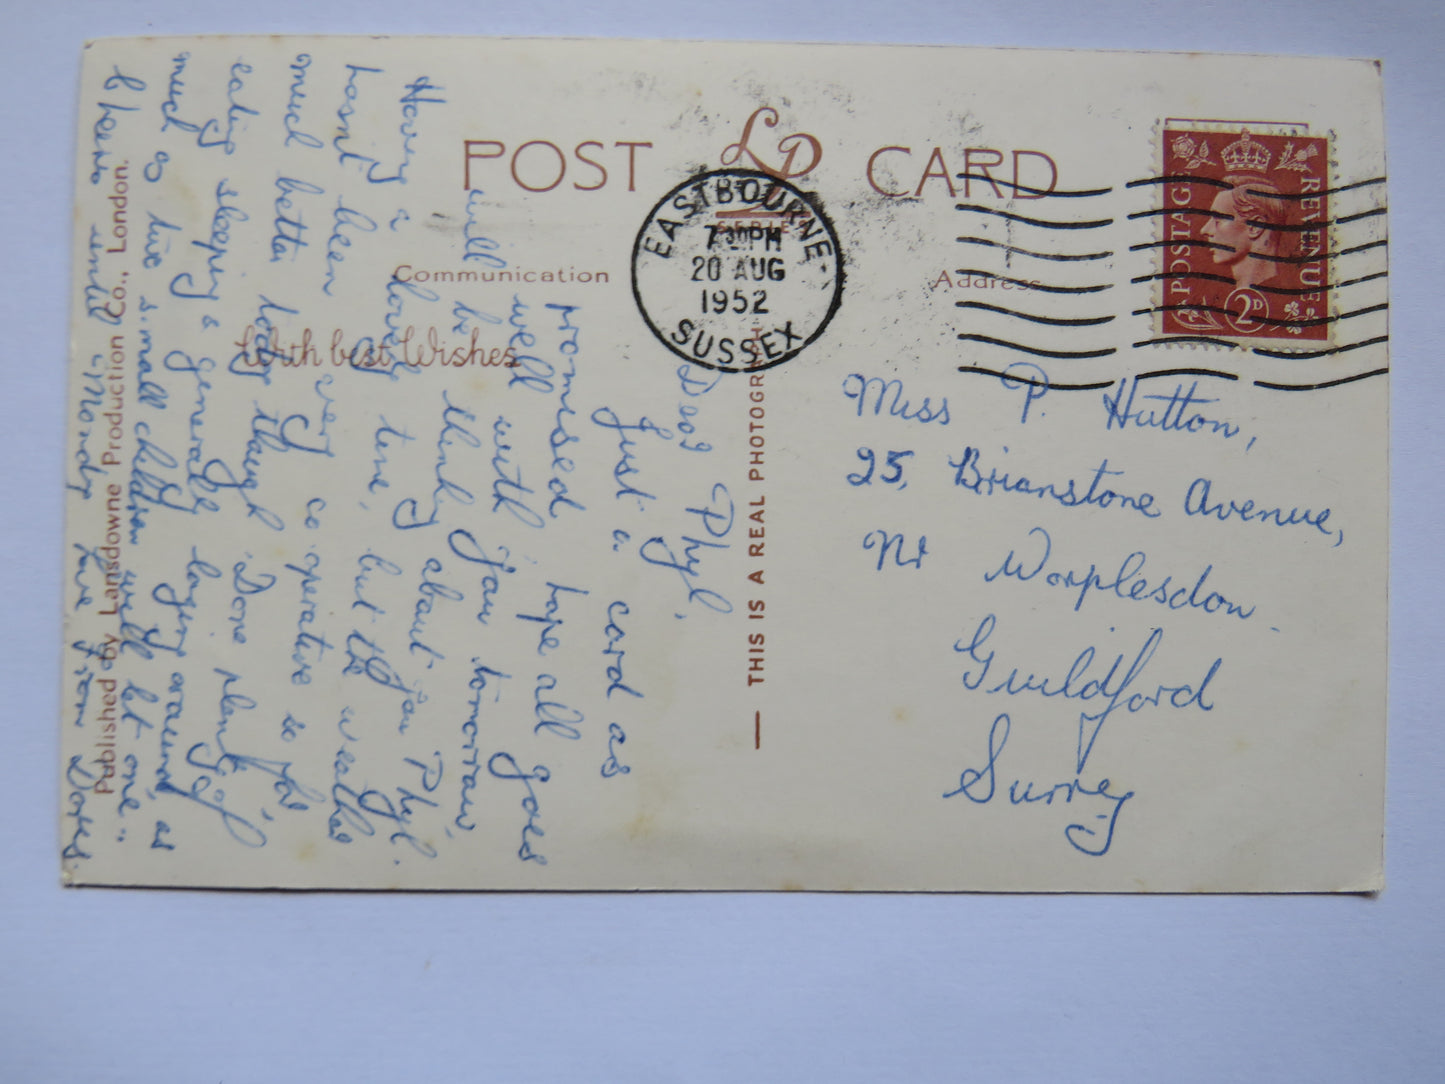 POST CARD
LP
SERIES
EASTBOURNE
7 30 PM
20 AUG
1952
SUSSEX
POSTAGE
REVENUE
2D
Communication
Address
With best Wishes
THIS IS A REAL PHOTOGRAPH
Published by Lansdowne Production Co., London.
Dear Phyl,
Just a card as
promised, hope all goes
well with you tomorrow,
will be thinking about you Phyl.
Having a lovely time, but the weather
hasn't been very co operative so far
much better today though. Done plenty of
eating, sleeping & generally laying around, as
much as two small children will let one.
Cheerio until Monday Love from Dores.
Miss P. Hutton,
25, Brianstone Avenue,
Nr Worplesdon.
Guildford
Surrey